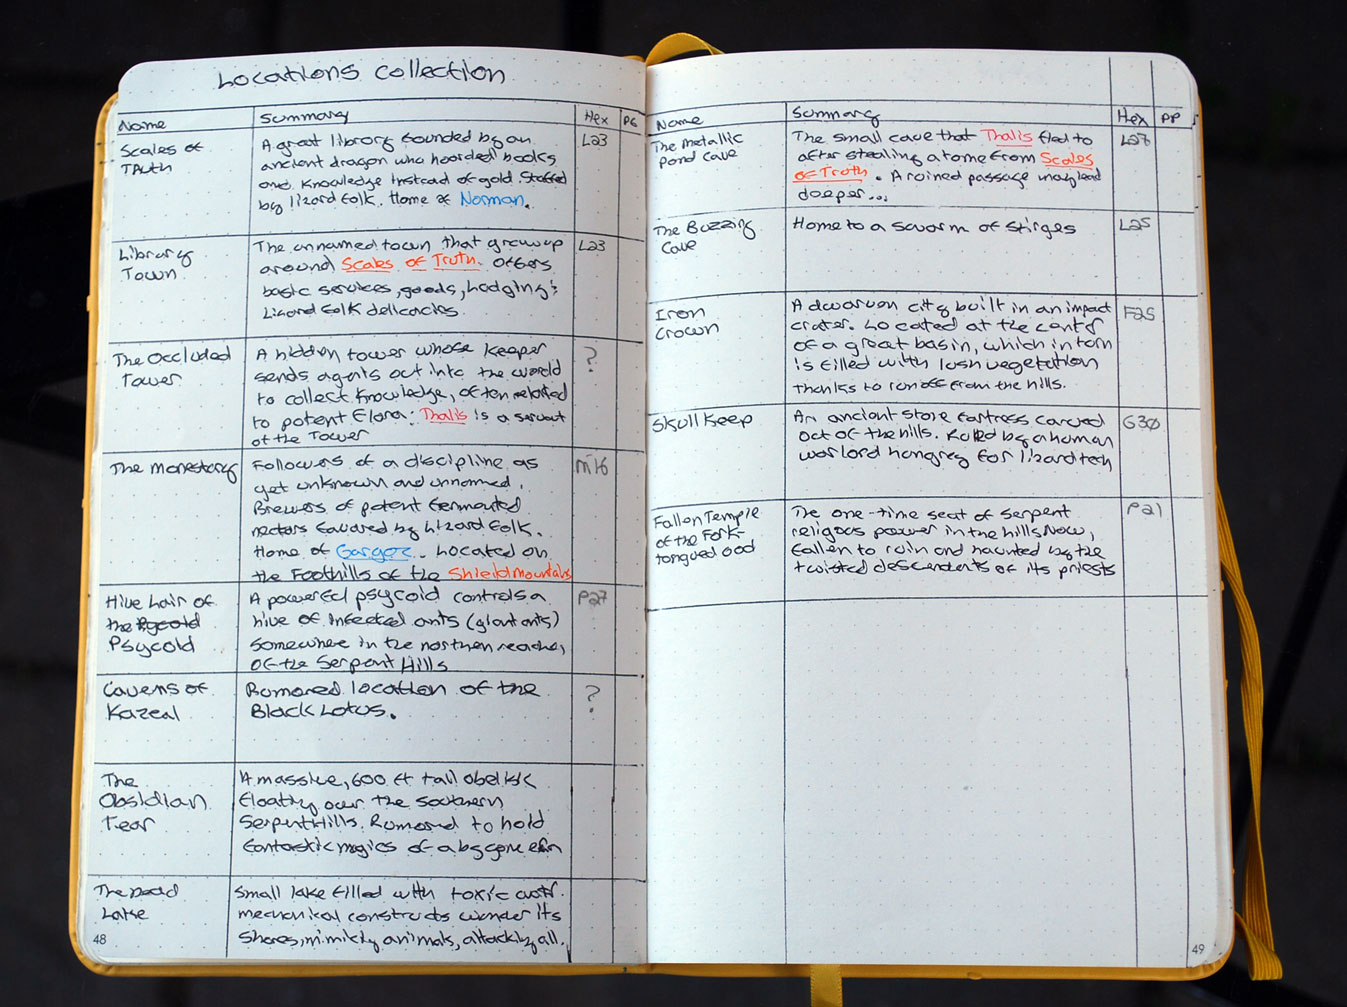 Locations Collection
Name Summary Hex PG
Scales of A great library founded by an L23
Truth ancient dragon who hoarded books
and knowledge instead of gold. Staffed
by lizard folk. Home of Norman.
Library The unnamed town that grew up L23
Town around Scales of Truth. Offers
basic services, goods, lodging &
Lizard folk delicacies.
The Occluded A hidden tower whose keeper ?
Tower sends agents out into the world
to collect knowledge, often related
to potent flora. Thalis is a servant
of the Tower
The Monestary Followers of a discipline as M16
yet unknown and unnamed.
Brewers of potent fermented
nectars favored by lizard folk.
Home of Located on
the Foothills of the Shield Mountains
Hive Lair of A powered psycoid controls a P27
the hive of infected ants (giant ants)
Psycold somewhere in the northen reaches
of the Serpent Hills
Caverns of Rumored location of the ?
Kazeal Black Lotus.
The A massive, 600 ft tall obelisk
Obsidian floating over the southern
Tear Serpent Hills. Rumored to hold
fantastic magics of a bygone
The Dead Small lake filled with toxic
Lake mechanical constructs wander its
shores, mimicking animals, attacking all.
48
Name Summary Hex PP
The Metallic The small cave that Thalis fled to L26
Pond Cave after stealing a tome from Scales
of Truth. A ruined passage may lead
deeper...
The Buzzing Home to a swarm of stirges L25
Cave
Iron A dwarven city built in an impact F25
Crown crater. Located at the
of a great basin, which in turn
is filled with lush vegetation
thanks to runoff from the hills.
Skull Keep An ancient stone fortress carved G30
out of the hills. Ruled by a human
warlord hungry for lizard
Fallen Temple The one-time seat of serpent P21
of the Fork- religous power in the hills. Now,
tongued God fallen to ruin and haunted by the
twisted descendents of its priests
49